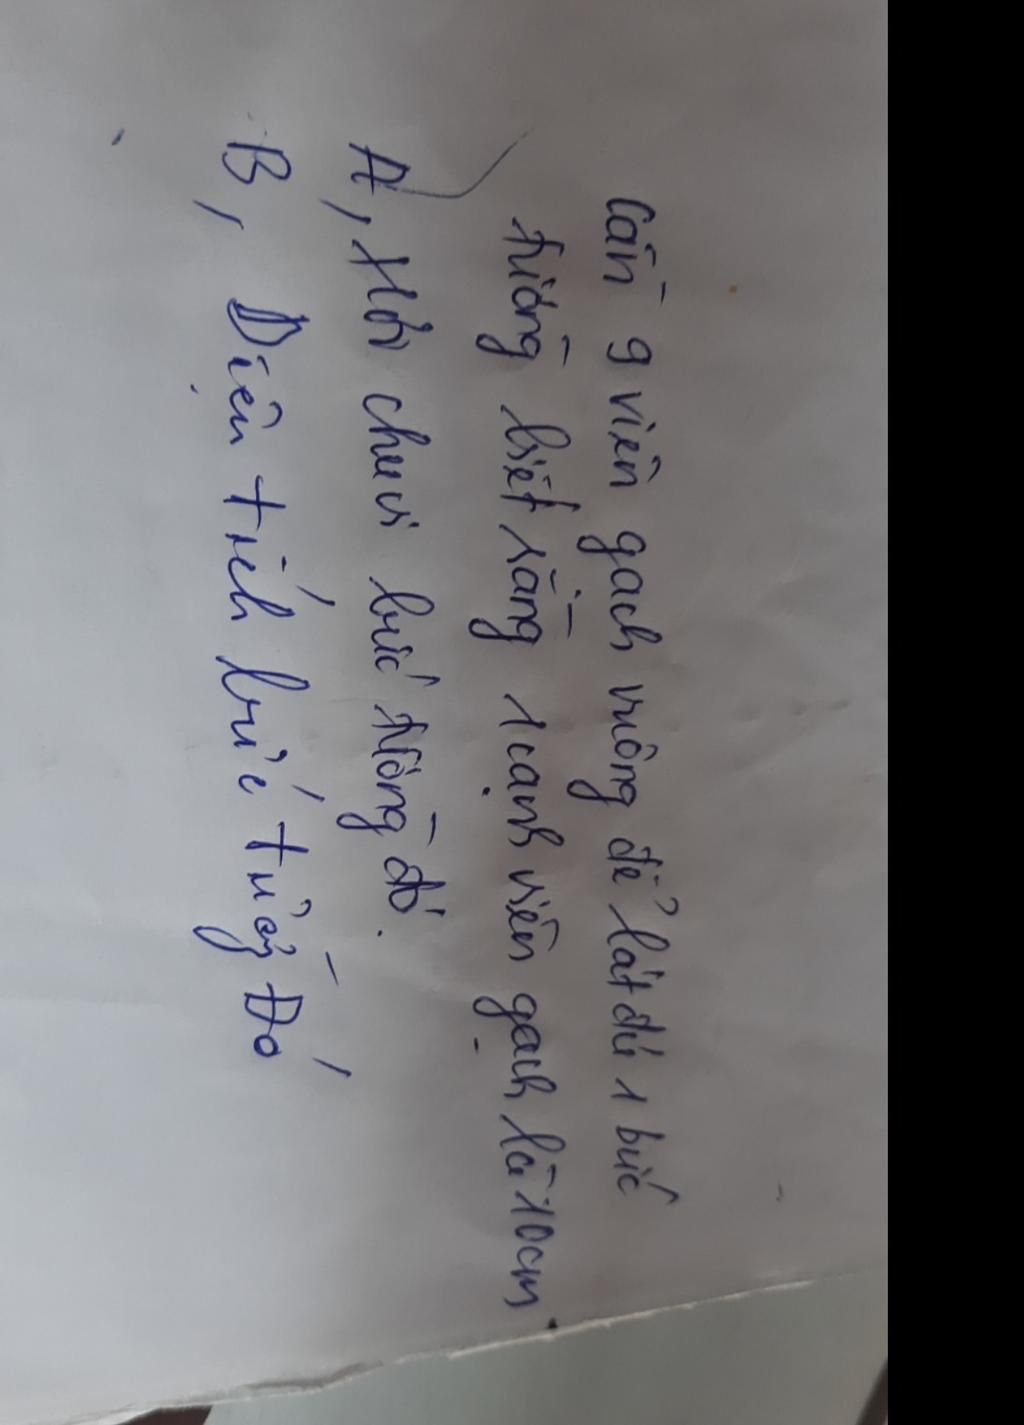 Cần 9 viên gạch vuông để lát đủ 1 bức
tường biết rằng 1 cạnh viên gạch là 10cm
A, Hỏi chu vi bức tường đó.
B, Diện tích bức tường Đó